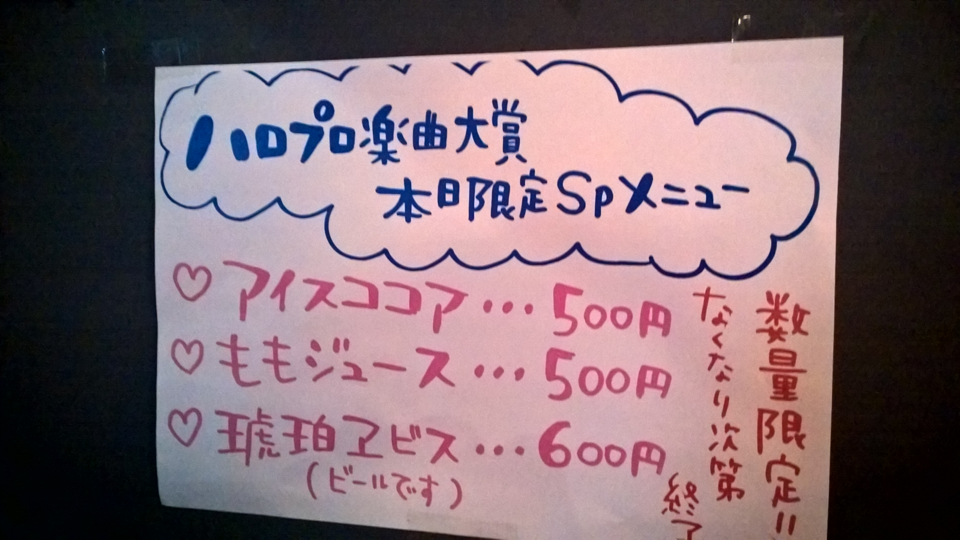 ハロプロ楽曲大賞
本日限定Spメニュー
♡アイスココア…500円
♡ももジュース…500円
♡琥珀ヱビス…600円
(ビールです)
数量限定!!
なくなり次第
終了